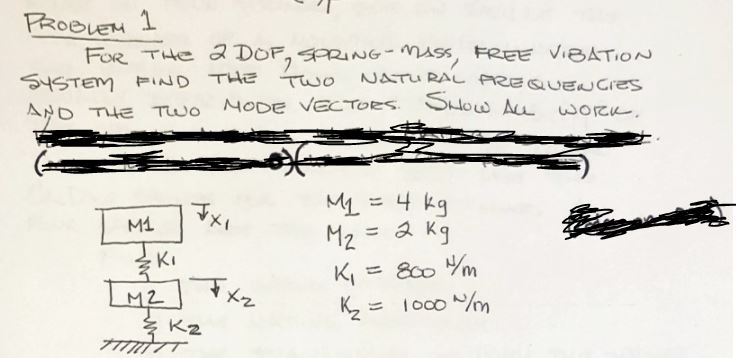 PROBLEM 1
FOR THE 2 DOF, SPRING-MASS, FREE VIBATION
SYSTEM FIND THE TWO NATURAL FREQUENCIES
AND THE TWO MODE VECTORS. SHOW ALL WORK.
M1
X1
K1
M2
X2
K2
M1 = 4 kg
M2 = 2 kg
K1 = 800 N/m
K2 = 1000 N/m